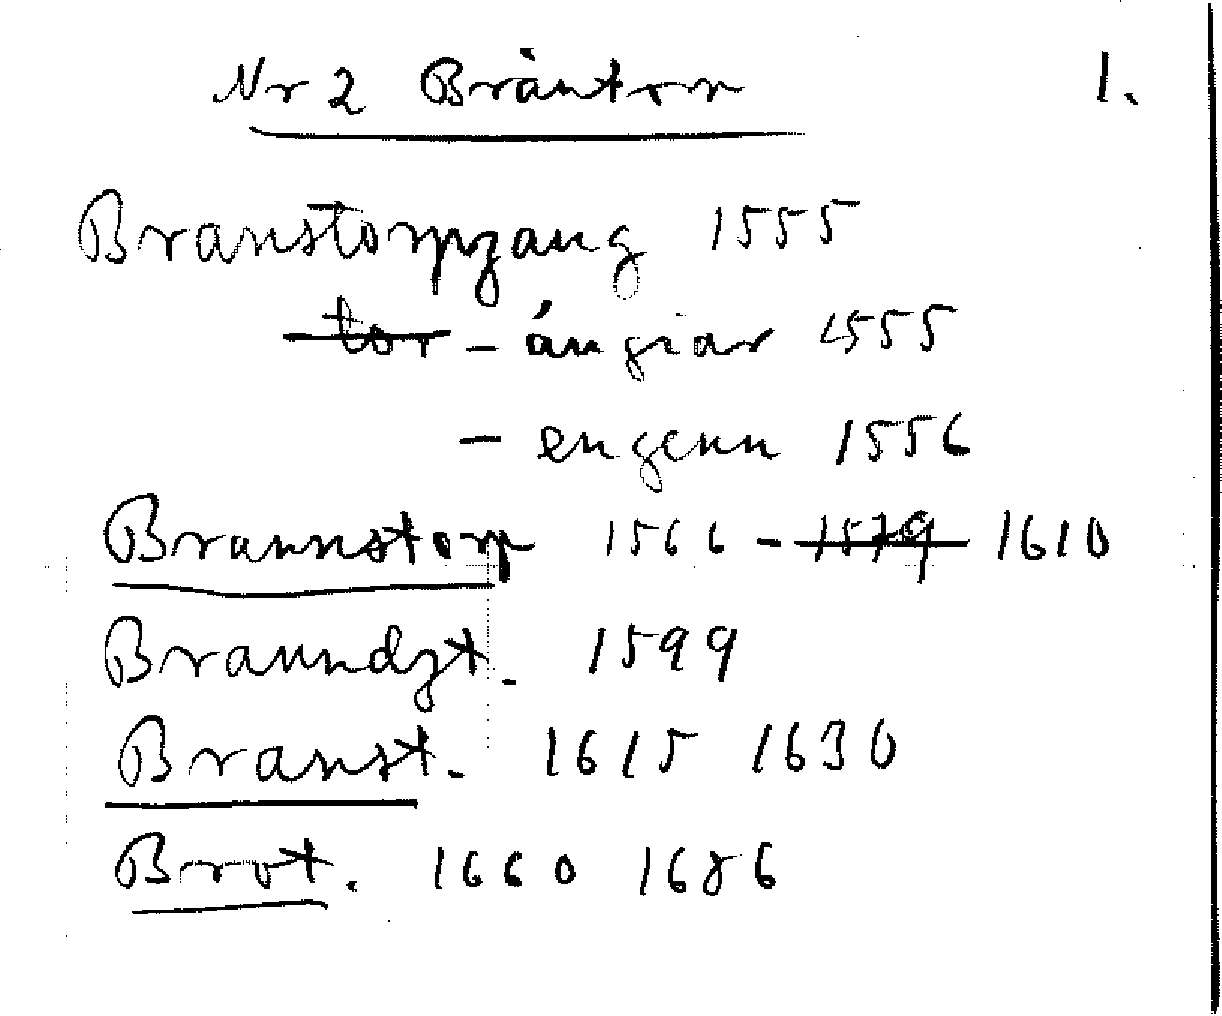 Nr 2 Bräntorp 1.
Branstorpzang 1555
tor - ängiar 1555
- engenn 1556
Brannstorp 1566 - 1579 1610
Branndzt. 1599
Branst. 1615 1630
Brot. 1660 1686